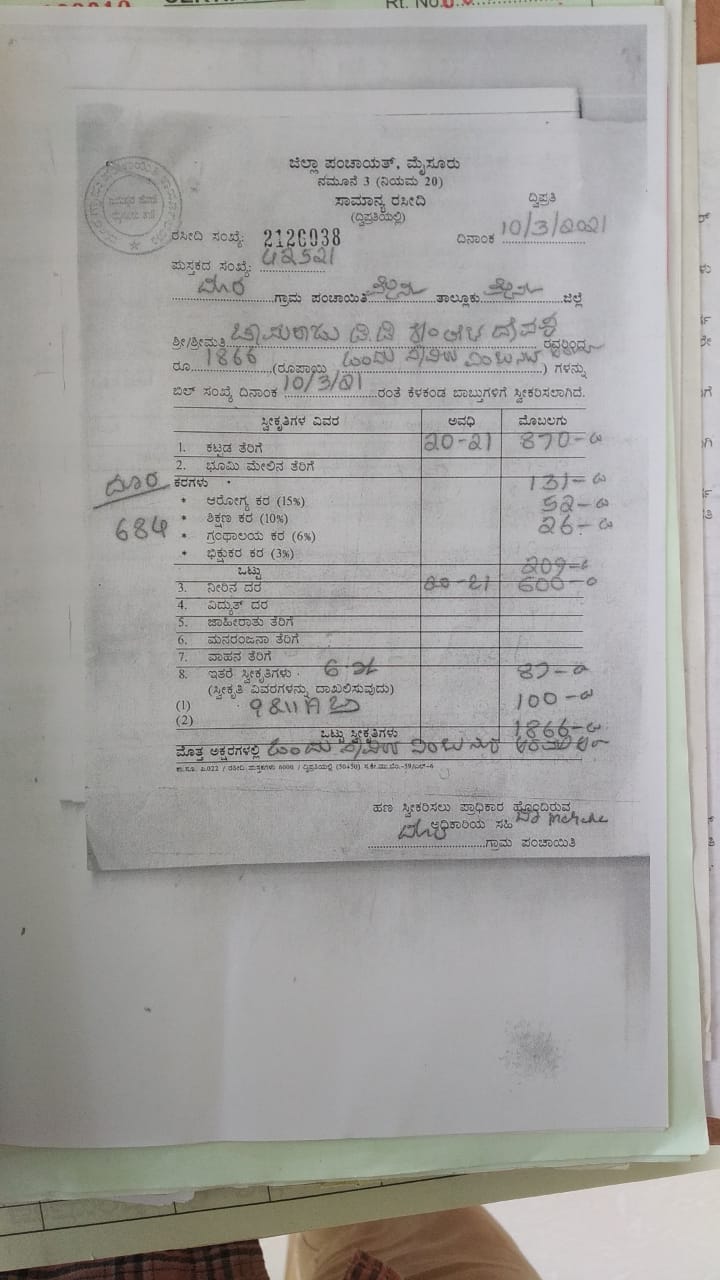 Rt. No.
ಜಿಲ್ಲಾ ಪಂಚಾಯತ್, ಮೈಸೂರು
ನಮೂನೆ 3 (ನಿಯಮ 20)
ಸಾಮಾನ್ಯ ರಸೀದಿ
ದ್ವಿಪ್ರತಿ
(ದ್ವಿಪ್ರತಿಯಲ್ಲಿ)
ರಸೀದಿ ಸಂಖ್ಯೆ: 2126038 ದಿನಾಂಕ 10/3/2021
ಪುಸ್ತಕದ ಸಂಖ್ಯೆ: 42521
ದೂರ ಗ್ರಾಮ ಪಂಚಾಯಿತಿ ಮೈಸೂರು ತಾಲ್ಲೂಕು ಮೈಸೂರು ಜಿಲ್ಲೆ
ಶ್ರೀ/ಶ್ರೀಮತಿ ರವರಿಂದ
ರೂ. 1866 (ರೂಪಾಯಿ ಒಂದು ಸಾವಿರ ಎಂಟುನೂರ ) ಗಳನ್ನು
ಬಿಲ್ ಸಂಖ್ಯೆ ದಿನಾಂಕ 10/3/21 ರಂತೆ ಕೆಳಕಂಡ ಬಾಬ್ತುಗಳಿಗೆ ಸ್ವೀಕರಿಸಲಾಗಿದೆ.
ಸ್ವೀಕೃತಿಗಳ ವಿವರ ಅವಧಿ ಮೊಬಲಗು
1. ಕಟ್ಟಡ ತೆರಿಗೆ 20-21 870-00
2. ಭೂಮಿ ಮೇಲಿನ ತೆರಿಗೆ
ದೂರ ಕರಗಳು 131-00
* ಆರೋಗ್ಯ ಕರ (15%) 52-00
684 * ಶಿಕ್ಷಣ ಕರ (10%) 26-00
* ಗ್ರಂಥಾಲಯ ಕರ (6%)
* ಭಿಕ್ಷುಕರ ಕರ (3%)
ಒಟ್ಟು 209-0
3. ನೀರಿನ ದರ 20-21 600-0
4. ವಿದ್ಯುತ್ ದರ
5. ಜಾಹೀರಾತು ತೆರಿಗೆ
6. ಮನರಂಜನಾ ತೆರಿಗೆ
7. ವಾಹನ ತೆರಿಗೆ
8. ಇತರೆ ಸ್ವೀಕೃತಿಗಳು 87-0
(ಸ್ವೀಕೃತಿ ವಿವರಗಳನ್ನು ದಾಖಲಿಸುವುದು)
(1) 100-0
(2)
ಒಟ್ಟು ಸ್ವೀಕೃತಿಗಳು 1866-00
ಮೊತ್ತ ಅಕ್ಷರಗಳಲ್ಲಿ ಒಂದು ಸಾವಿರ ಎಂಟುನೂರ
ಹಣ ಸ್ವೀಕರಿಸಲು ಪ್ರಾಧಿಕಾರ ಹೊಂದಿರುವ
ಅಧಿಕಾರಿಯ ಸಹಿ
ದೂರ ಗ್ರಾಮ ಪಂಚಾಯಿತಿ